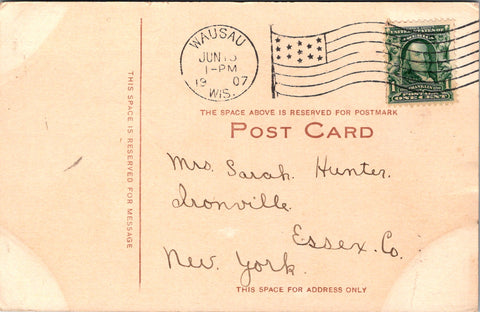 WAUSAU
JUN
1-PM
19 07
WIS.
THE SPACE ABOVE IS RESERVED FOR POSTMARK
POST CARD
THIS SPACE IS RESERVED FOR MESSAGE
Mrs. Sarah Hunter.
Ironville.
Essex. Co.
New. York.
THIS SPACE FOR ADDRESS ONLY
FRANKLIN
POSTAGE
1 ONE CENT